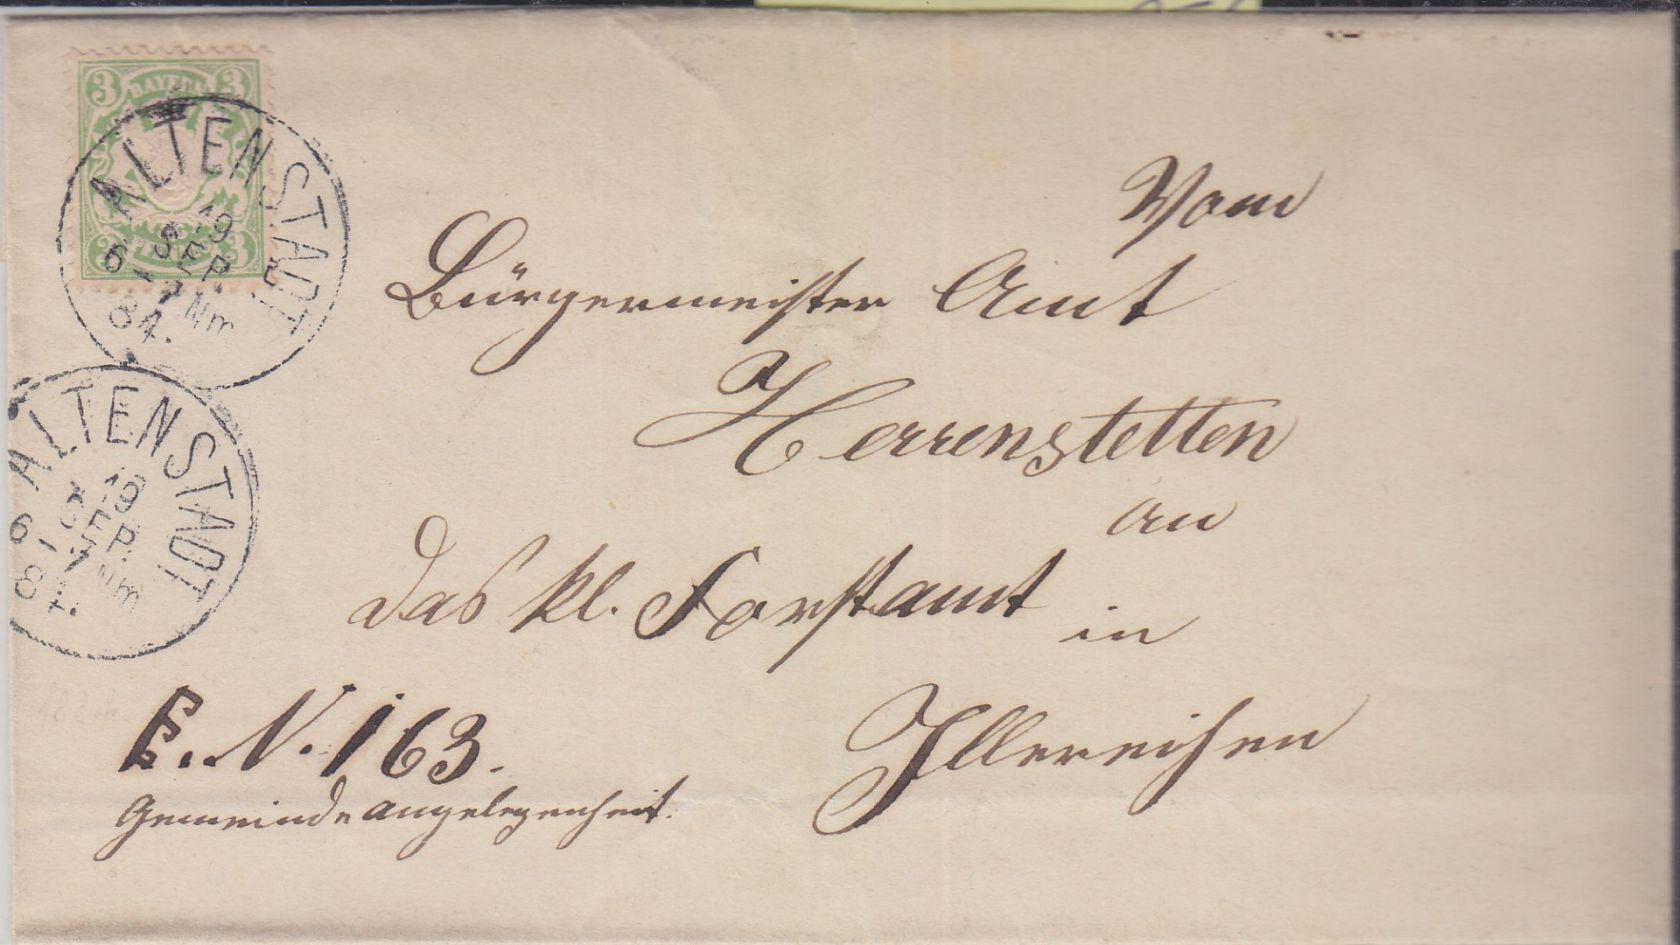 3 BAYERN 3
3 3
ALTENSTADT
19
SEP.
6-7 Nm
84.
ALTENSTADT
19
SEP.
6-7 Nm
84.
Vom
Bürgermeister Amt
Herrenstetten
an
das kl. Forstamt in
Illereichen
E. N. 163.
Gemeindeangelegenheit.